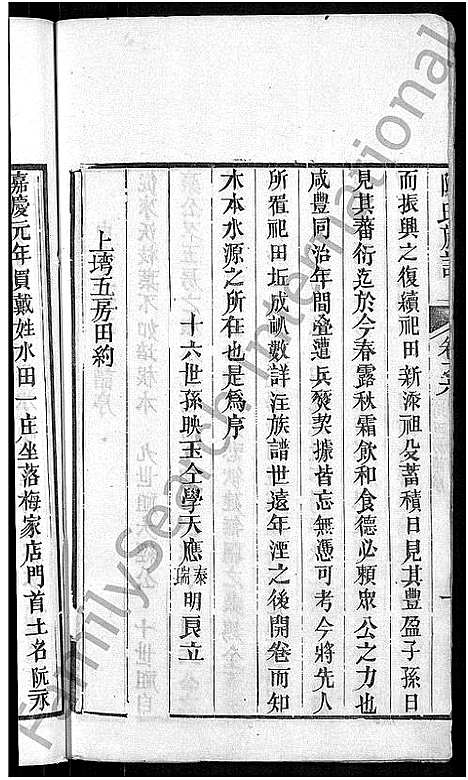 阮氏族譜
卷之六
一
而振興之復續祀田新添祖殳蓄積日見其豐盈子孫日
見其蕃衍迄於今春露秋霜飲和食德必賴眾公之力也
咸豐同治年間叠遭兵燹契據皆忘無憑可考今將先人
所置祀田坵成畝數詳注族譜世遠年湮之後開卷而知
木本水源之所在也是爲序
十六世孫映玉仝學天應泰瑞明良立
上塆五房田約
嘉慶元年買戴姓水田一庄坐落梅家店門首土名阮家
FamilySearch International